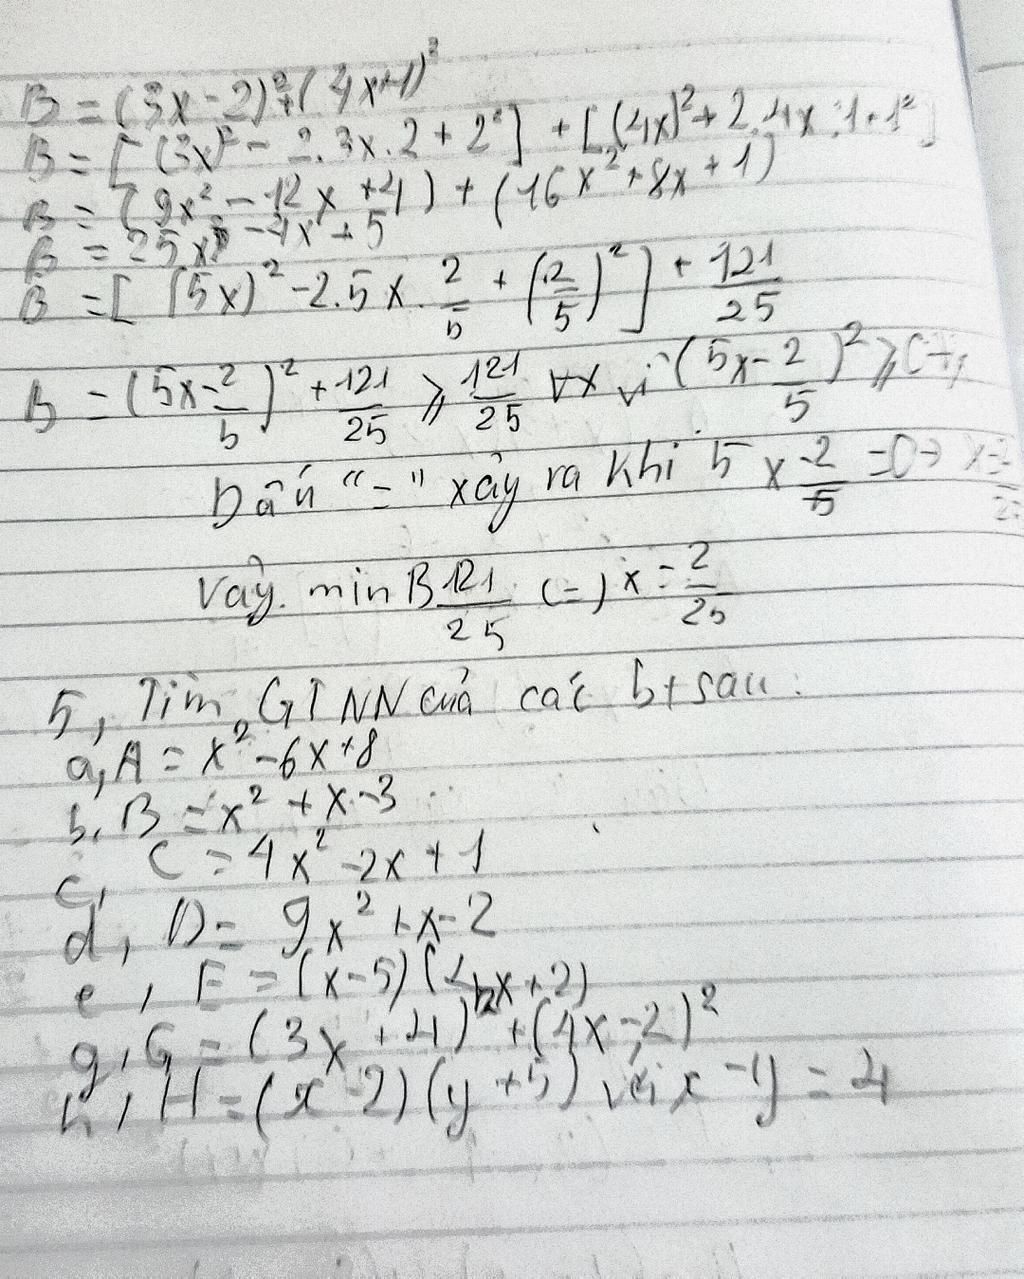 B = (3x - 2)² + (4x+1)²
B = [(3x)² - 2.3x.2 + 2²] + [(4x)² + 2.4x.1+1²]
B = (9x² - 12x + 4) + (16x² + 8x + 1)
B = 25x² - 4x + 5
B = [(5x)² - 2.5x.2/5 + (2/5)²] + 121/25
B = (5x - 2/5)² + 121/25 ⩾ 121/25 ∀x vì (5x - 2/5)² ⩾ 0
Dấu "=" xảy ra khi 5x - 2/5 = 0 → x =
Vậy. min B 121/25 (=) x = 2/25
5, Tìm GTNN của các bt sau:
a, A = x² - 6x + 8
b, B = x² + x - 3
c, C = 4x² - 2x + 1
d, D = 9x² + x - 2
e, E = (x - 5)(x + 2)
g, G = (3x + 4)² + (4x - 2)²
h, H = (x - 2)(y + 5) với x - y = 4